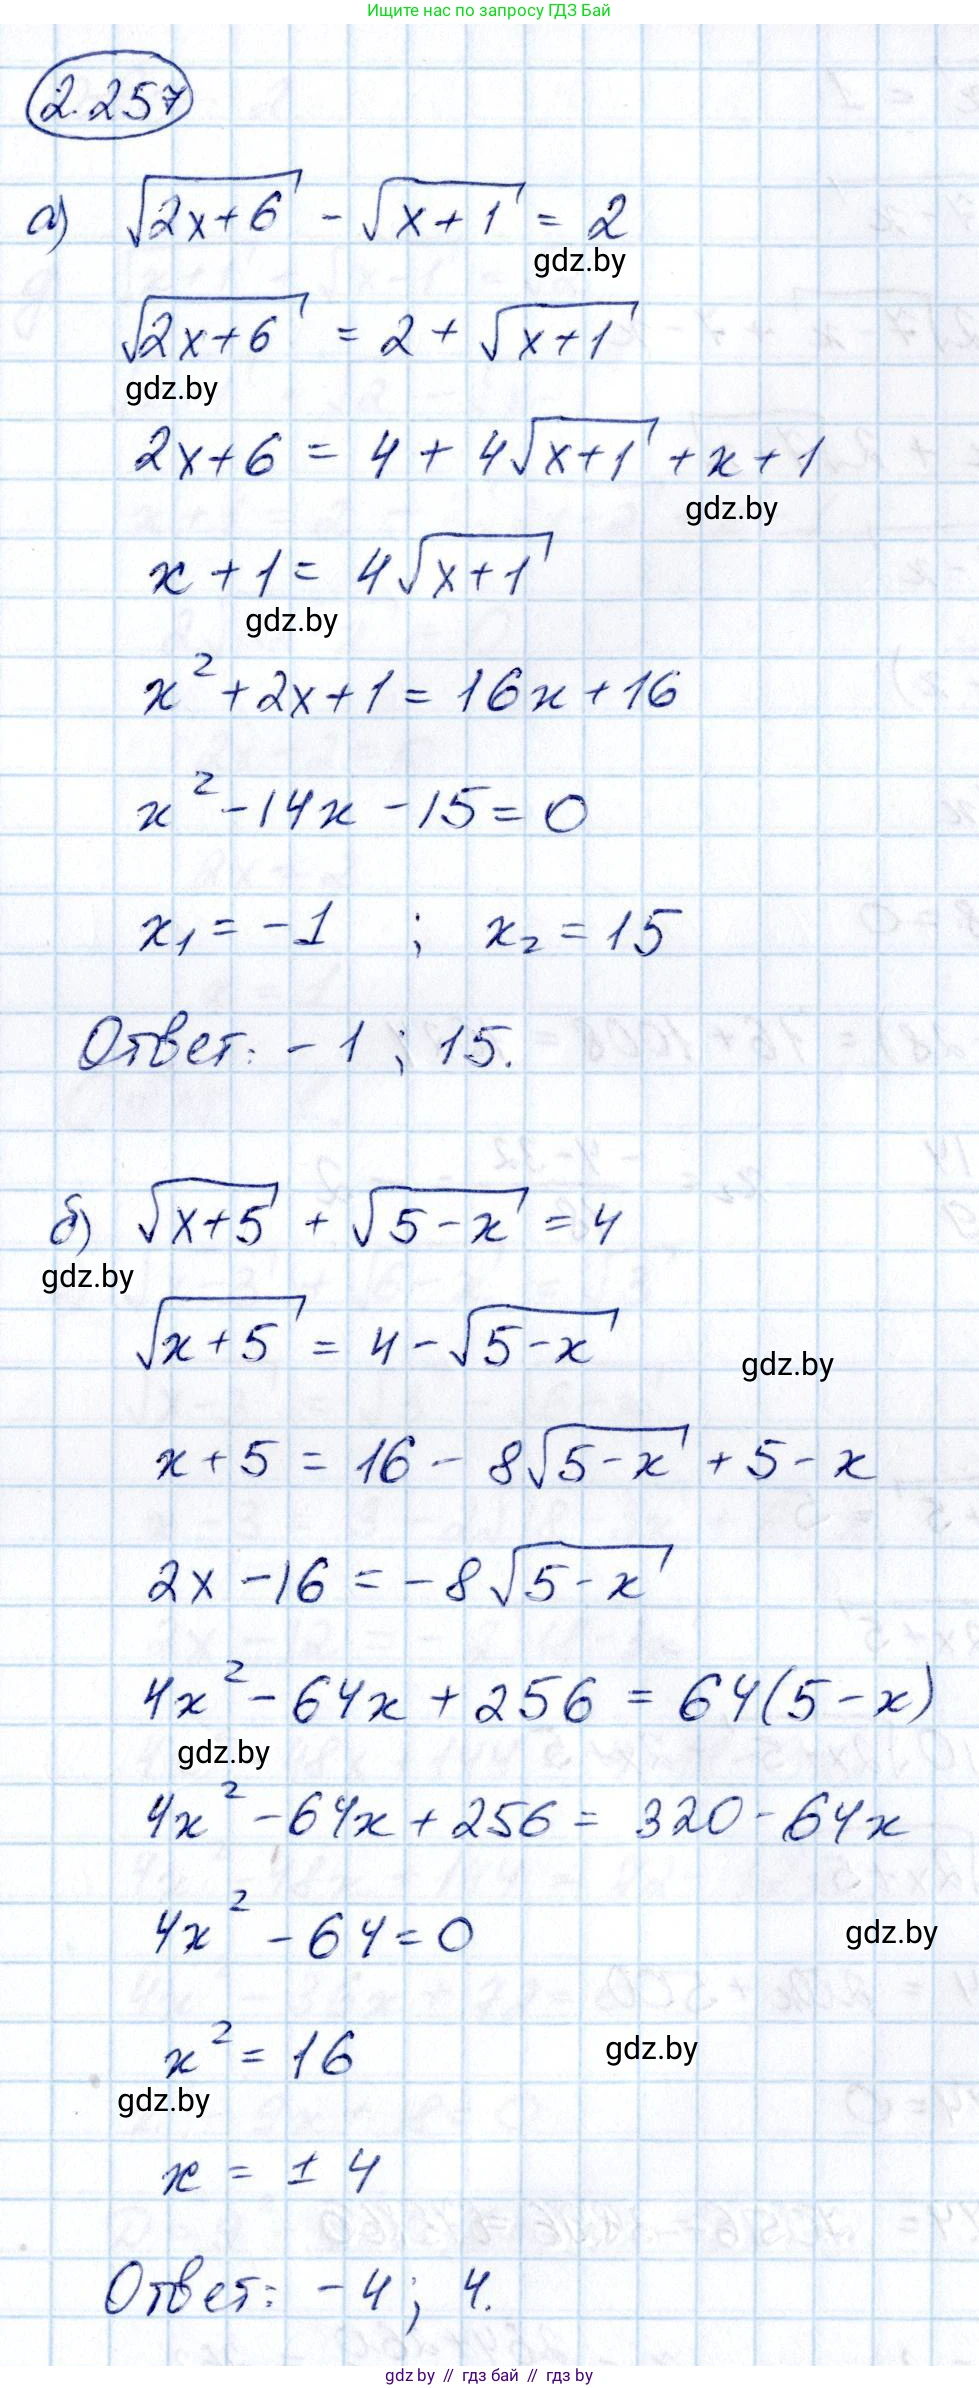 Ищите нас по запросу ГДЗ Бай
2.257
а) √(2x+6) - √(x+1) = 2
gdz.by
√(2x+6) = 2 + √(x+1)
gdz.by
2x+6 = 4 + 4√(x+1) + x + 1
gdz.by
x + 1 = 4√(x+1)
gdz.by
x² + 2x + 1 = 16x + 16
x² - 14x - 15 = 0
x₁ = -1 ; x₂ = 15
Ответ: -1 ; 15.
б) √(x+5) + √(5-x) = 4
gdz.by
√(x+5) = 4 - √(5-x)
gdz.by
x + 5 = 16 - 8√(5-x) + 5 - x
2x - 16 = -8√(5-x)
4x² - 64x + 256 = 64(5-x)
gdz.by
4x² - 64x + 256 = 320 - 64x
4x² - 64 = 0
gdz.by
x² = 16
gdz.by
gdz.by
x = ± 4
Ответ: -4; 4.
gdz.by // гдз бай // гдз by